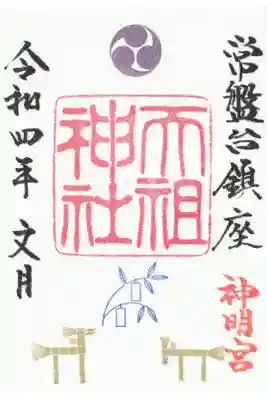 常盤台鎮座
天祖
神社
神明宮
令和四年 文月